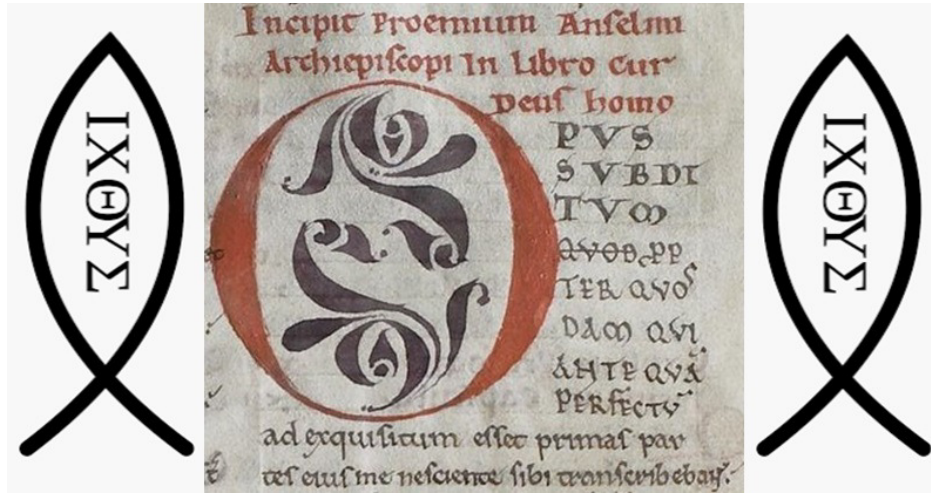 ΙΧΘΥΣ
Incipit Proemium Anſelmi
Archiepiſcopi In Libro cur
Deuſ homo
OPVS
SVBDI
TVM
QVOD PP
TER QVOS
DAM QVI
ANTE QVĀ
PERFECTV̄
ad exquiſitum eſſet primaſ par
teſ eiuſ me neſciente ſibi
ΙΧΘΥΣ